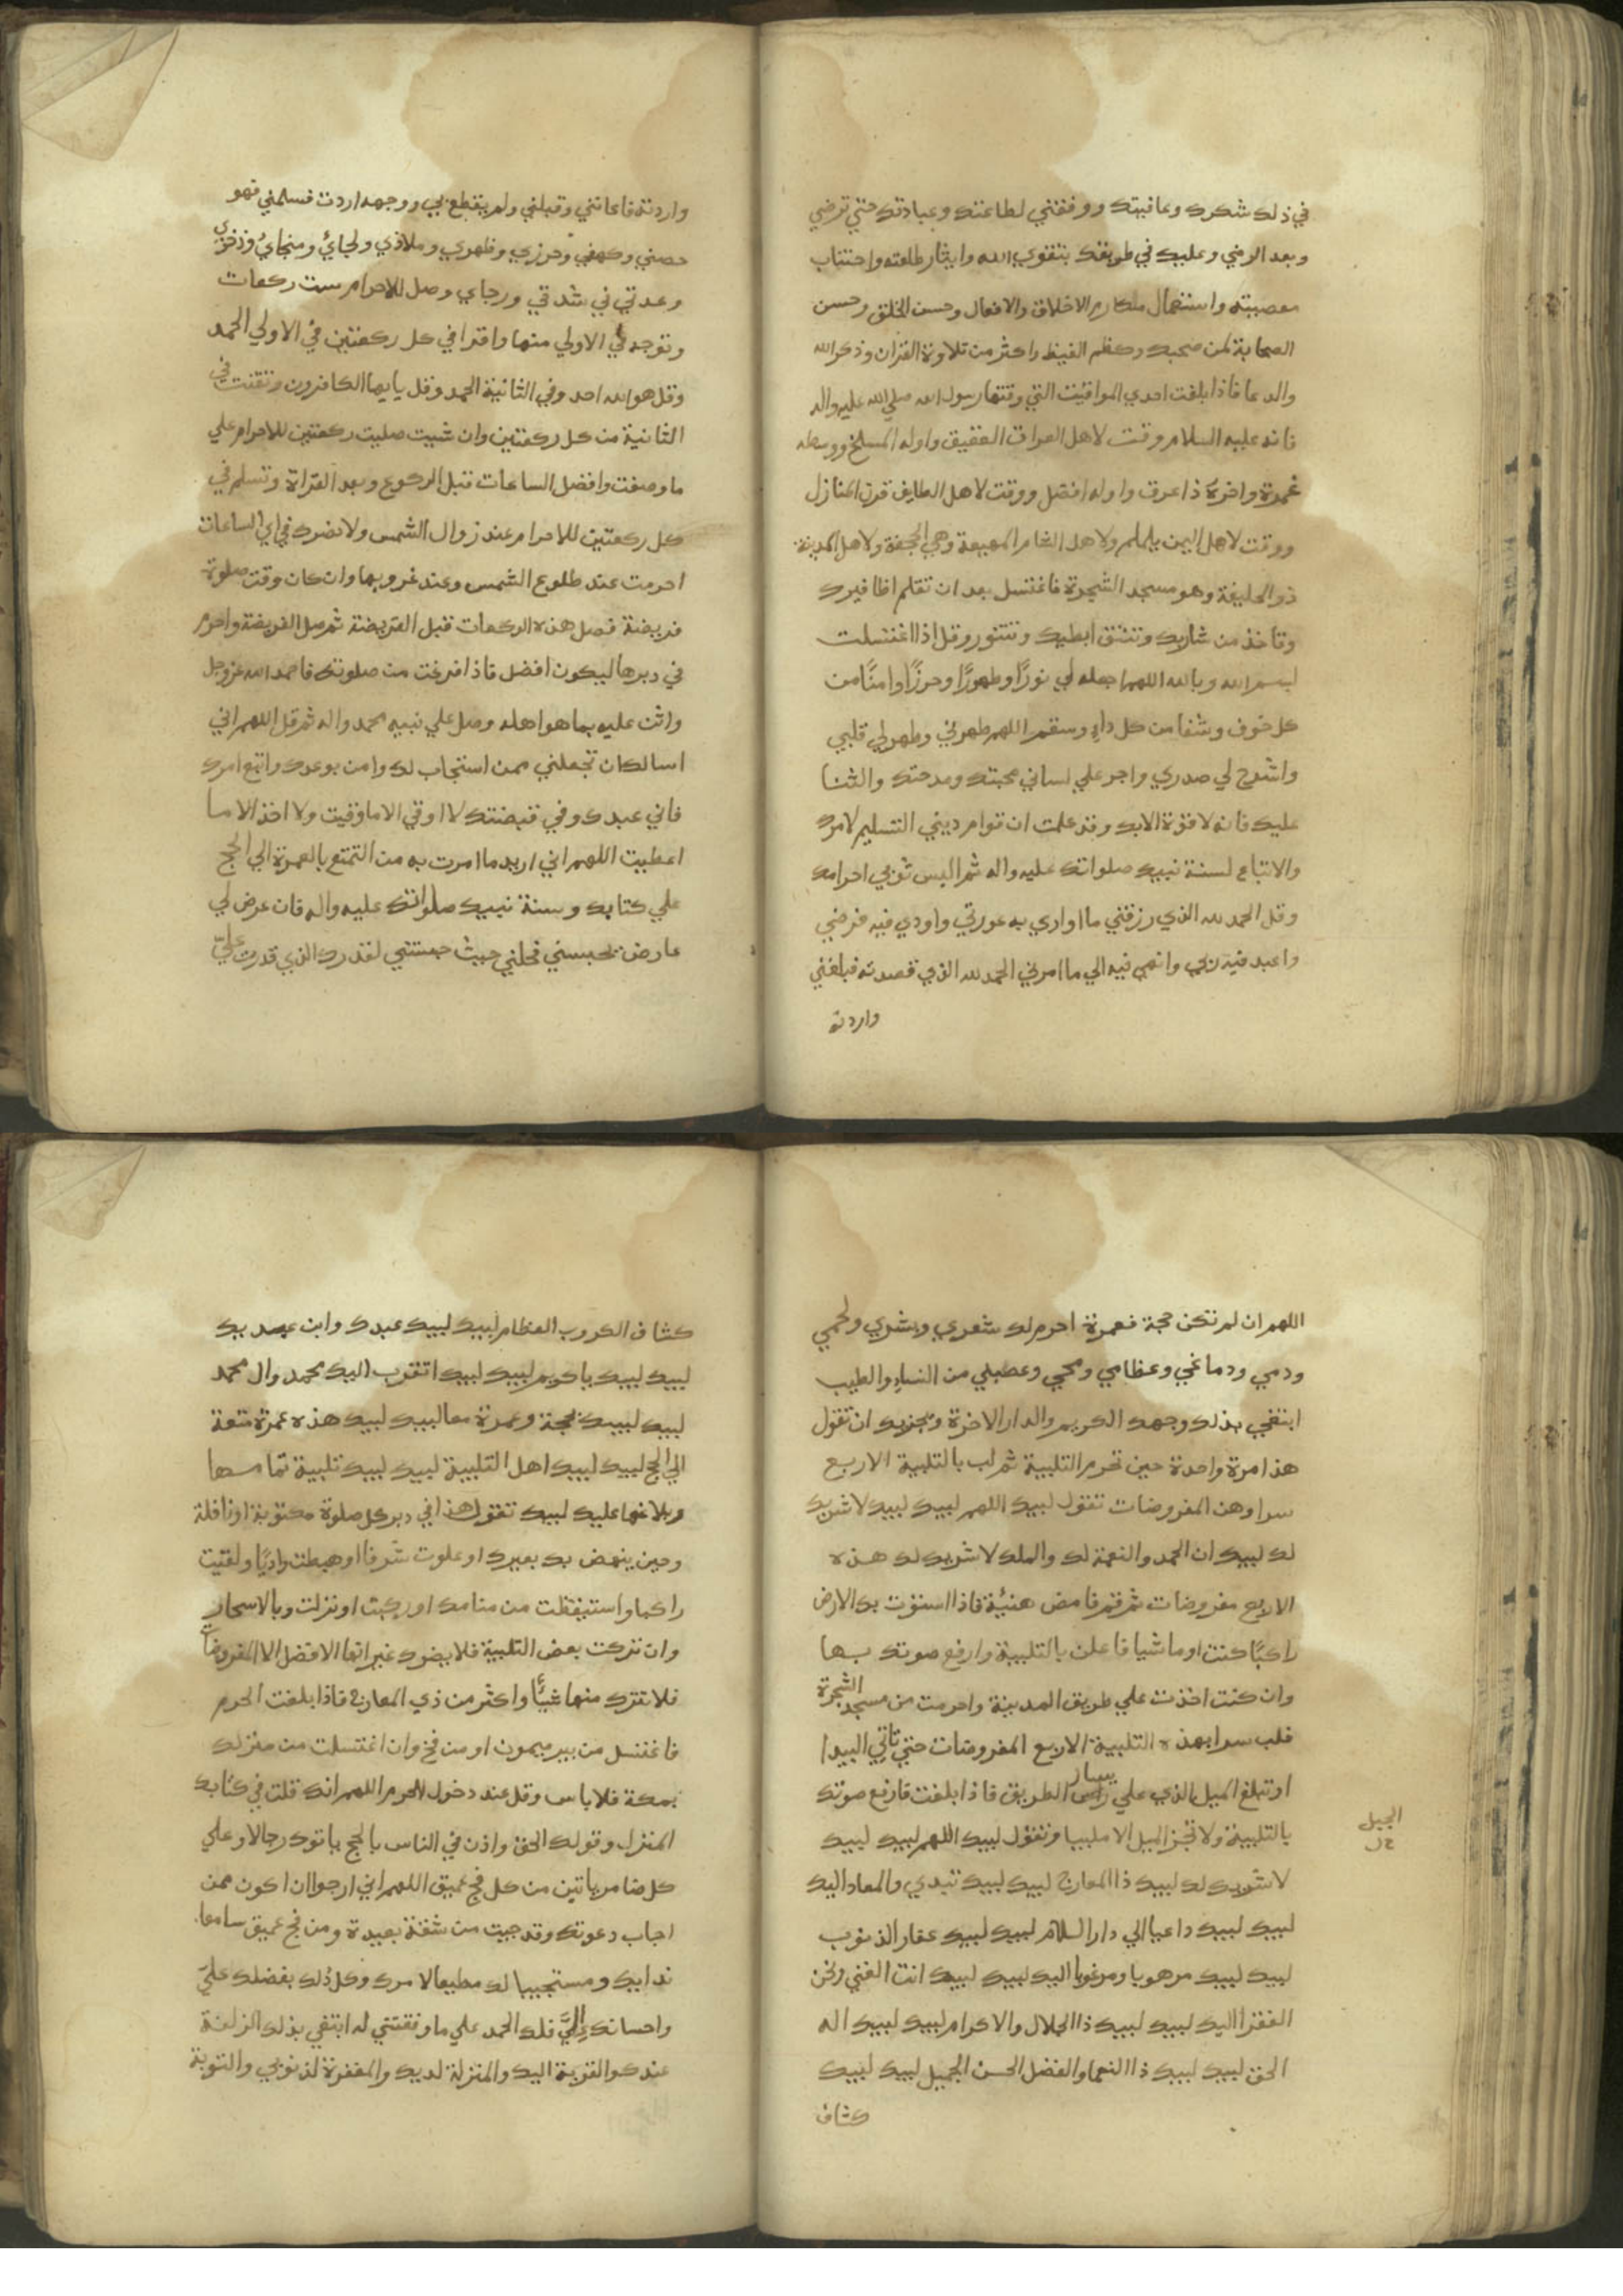 في ذلك شكرك وعافيتك ووفقني لطاعتك وعبادتك حتي ترضي
وبعد الرضي وعليك في طريقك بتقوي الله وايثار طاعته واجتناب
معصيته واستعمال مكارم الاخلاق والافعال وحسن الخلق وحسن
الصحابة لمن صحبك وكظم الغيظ واكثر من تلاوة القران وذكر الله
والدعا فاذا بلغت احدي المواقيت التي وقتها رسول الله صلي الله عليه واله
فانه عليه السلام وقت لاهل العراق العقيق واوله المسلخ ووسطه
غمرة واخره ذا عرق واوله افضل ووقت لاهل الطايف قرن المنازل
ووقت لاهل اليمن يلملم ولاهل الشام المهيعة وهي الجحفة ولاهل المدينة
ذو الحليفة وهو مسجد الشجرة فاغتسل بعد ان تقلم اظافيرك
وتاخذ من شاربك وتنتف ابطيك وتتنور وقل اذا اغتسلت
بسم الله وبالله اللهم اجعله لي نورًا وطهورًا وحرزًا وامنًا من
كل خوف وشفا من كل داءٍ وسقم اللهم طهرني وطهر لي قلبي
واشرح لي صدري واجر علي لساني محبتك ومدحتك والثنا
عليك فانه لا قوة الا بك وقد علمت ان قوام ديني التسليم لامرك
والاتباع لسنة نبيك صلواتك عليه واله ثم البس ثوبي احرامك
وقل الحمد لله الذي رزقني ما اواري به عورتي واودي فيه فرضي
واعبد فيه ربي وانتهي فيه الي ما امرني الحمد لله الذي قصدته فبلغني
واردته
واردته فاعانني وقبلني ولم يقطع بي ووجهه اردت فسلمني فهو
حصني وكهفي وحرزي وظهري وملاذي ولجائ ومنجائ وذخري
وعدتي في شدتي ورجاي وصل للاحرام ست ركعات
وتوجه في الاولي منها واقرا في كل ركعتين في الاولي الحمد
وقل هو الله احد وفي الثانية الحمد وقل يا يها الكافرون وتقنت في
الثانية من كل ركعتين وان شيت صليت ركعتين للاحرام علي
ما وصفت وافضل الساعات قبل الركوع وبعد القراة وتسلم في
كل ركعتين للاحرام عند زوال الشمس ولا يضرك في اي الساعات
احرمت عند طلوع الشمس وعند غروبها وان كان وقت صلوة
فريضة فصل هذه الركعات قبل الفريضة ثم صل الفريضة واحرم
في دبرها ليكون افضل فاذا فرغت من صلوتك فاحمد الله عز وجل
واثن عليه بما هو اهله وصل علي نبيه محمد واله ثم قل اللهم اني
اسالك ان تجعلني ممن استجاب لك وامن بوعدك واتبع امرك
فاني عبدك وفي قبضتك لا اوقي الا ما وقيت ولا اخذ الا ما
اعطيت اللهم اني اريد ما امرت به من التمتع بالعمرة الي الحج
علي كتابك وسنة نبيك صلواتك عليه واله فان عرض لي
عارض يحبسني فحلني حيث حبستني لقدرك الذي قدرت عليّ
اللهم ان لم تكن حجة فعمرة احرم لك شعري وبشري ولحمي
ودمي ودماغي وعظامي ومخي وعصبي من النساءِ والطيب
ابتغي بذلك وجهك الكريم والدار الاخرة ويجزيك ان تقول
هذا مرة واحدة حين تحرم التلبية ثم لب بالتلبية الاربع
سرا وهن المفروضات تقول لبيك اللهم لبيك لبيك لا شريك
لك لبيك ان الحمد والنعمة لك والملك لا شريك لك هذه
الاربع مفروضات ثم قم فامض هنيئة فاذا استوت بك الارض
راكبًا كنت او ماشيا فاعلن بالتلبية وارفع صوتك بها
وان كنت اخذت علي طريق المدينة واحرمت من مسجد الشجرة
فلب سرا بهذه التلبية الاربع المفروضات حتي تاتي البيدا
او تبلغ الميل الذي علي راس يسار الطريق فاذا بلغت فارفع صوتك
بالتلبية ولا تجز الميل الا ملبيا وتقول لبيك اللهم لبيك لبيك
الجبل
خ ل
لا شريك لك لبيك ذا المعارج لبيك لبيك تبدي والمعاد اليك
لبيك لبيك داعيا الي دار السلام لبيك لبيك غفار الذنوب
لبيك لبيك مرهوبا ومرغوبا اليك لبيك لبيك انت الغني ونحن
الفقرا اليك لبيك لبيك ذا الجلال والاكرام لبيك لبيك اله
الحق لبيك لبيك ذا النعما والفضل الحسن الجميل لبيك لبيك
كشاف
كشاف الكروب العظام لبيك لبيك عبدك وابن عبديك
لبيك لبيك يا كريم لبيك لبيك اتقرب اليك بمحمد وال محمد
لبيك لبيك بحجة وعمرة معا لبيك لبيك هذه عمرة متعة
الي الحج لبيك لبيك اهل التلبية لبيك لبيك تلبية تمامها
وبلاغها عليك لبيك تقول هذا في دبر كل صلوة مكتوبة او نافلة
وحين ينهض بك بعيرك او علوت شرفا او هبطت واديًا ولقيت
راكبا واستيقظت من منامك او ركبت او نزلت وبالاسحار
وان تركت بعض التلبية فلا يضرك غير انها الافضل الا المفروضات
فلا تترك منها شيئًا واكثر من ذي المعارج فاذا بلغت الحرم
فاغتسل من بير ميمون او من فخ وان اغتسلت من منزلك
بمكة فلا باس وقل عند دخول الحرم اللهم انك قلت في كتابك
المنزل وقولك الحق واذن في الناس بالحج ياتوك رجالا وعلي
كل ضامر ياتين من كل فج عميق اللهم اني ارجوا ان اكون ممن
اجاب دعوتك وقد جيت من شقة بعيدة ومن فج عميق سامعا
ندايك ومستجيبا لك مطيعا لامرك وكل ذلك بفضلك عليّ
واحسانك اليَّ فلك الحمد علي ما وفقتني له ابتغي بذلك الزلفة
عندك والقربة اليك والمنزلة لديك والمغفرة لذنوبي والتوبة